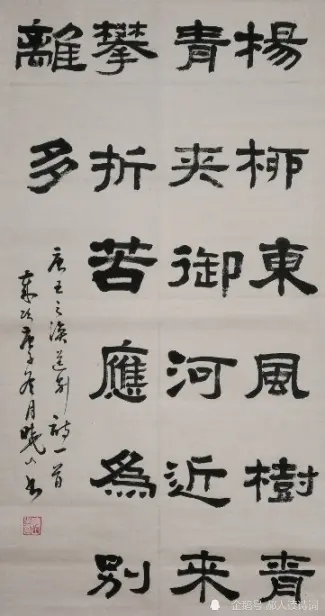 楊柳東風樹青
青夾御河近来
攀折苦應為別
離多
唐王之渙送别诗一首
歲次庚子冬月晓山书
企鹅号